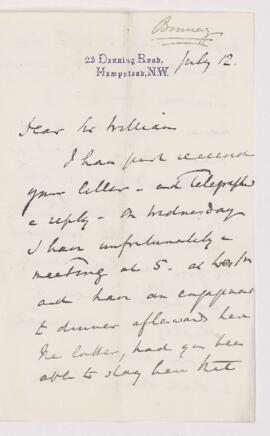 Bonney
23 Denning Road,
Hampstead, N.W.
July 12.
Dear Sir William
I have just received
your letter - and telegraphed
a reply - On Wednesday
I have unfortunately a
meeting at 5. at
and have an engagement
to dinner afterwards here
The latter, had you been
able to stay here that